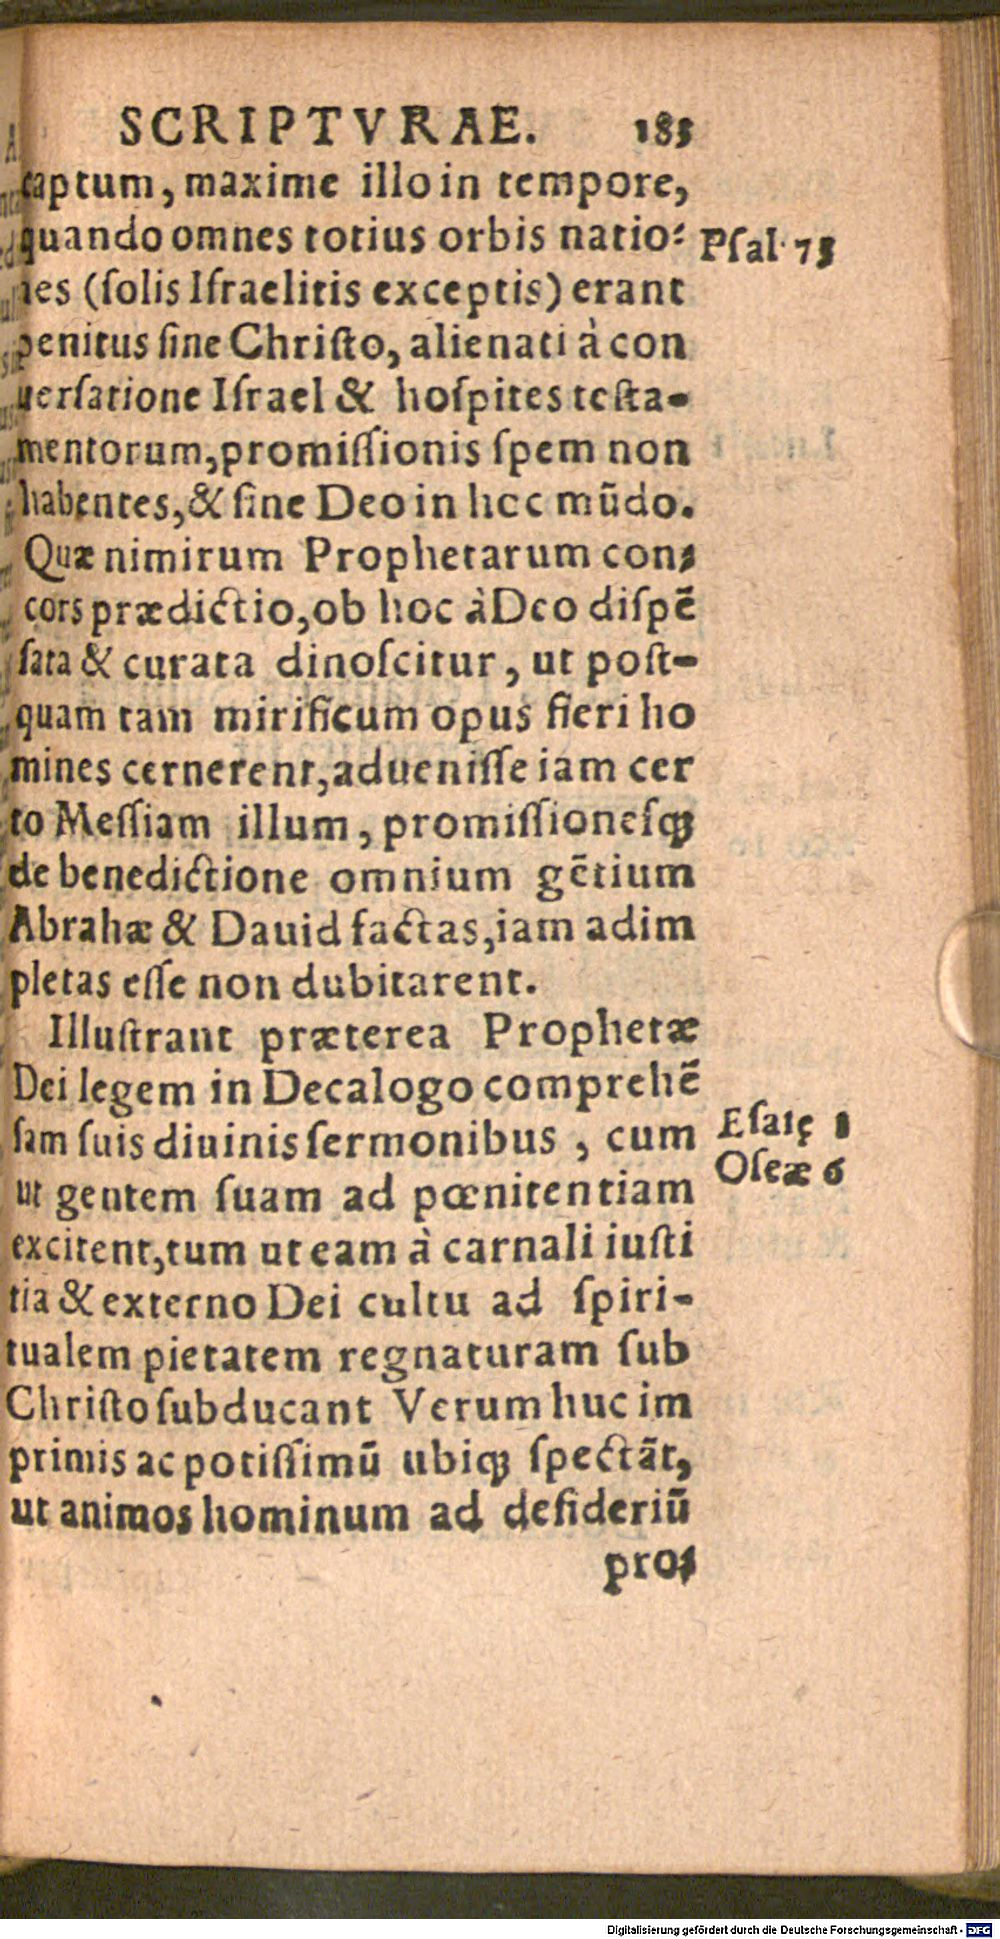 SCRIPTVRAE. 185
captum, maxime illo in tempore,
quando omnes totius orbis natio⸗ Pſal. 75
nes (ſolis Iſraelitis exceptis) erant
penitus ſine Chriſto, alienati à con
uerſatione Iſrael & hoſpites teſta-
mentorum, promiſſionis ſpem non
habentes, & ſine Deo in hoc mūdo.
Quæ nimirum Prophetarum con⸗
cors prædictio, ob hoc à Deo diſpẽ
ſata & curata dinoſcitur, ut poſt-
quam tam mirificum opus fieri ho
mines cernerent, adueniſſe iam cer
to Meſſiam illum, promiſſioneſqꝫ
de benedictione omnium gẽtium
Abrahæ & Dauid factas, iam adim
pletas eſſe non dubitarent.
Illuſtrant præterea Prophetæ
Dei legem in Decalogo comprehẽ
ſam ſuis diuinis ſermonibus, cum Eſaię 1
ut gentem ſuam ad pœnitentiam Oſeæ 6
excitent, tum ut eam à carnali iuſti
tia & externo Dei cultu ad ſpiri-
tualem pietatem regnaturam ſub
Chriſto ſubducant Verum huc im
primis ac potiſſimū ubiqꝫ ſpectãt,
ut animos hominum ad deſideriū
pro⸗
Digitalisierung gefördert durch die Deutsche Forschungsgemeinschaft - DFG